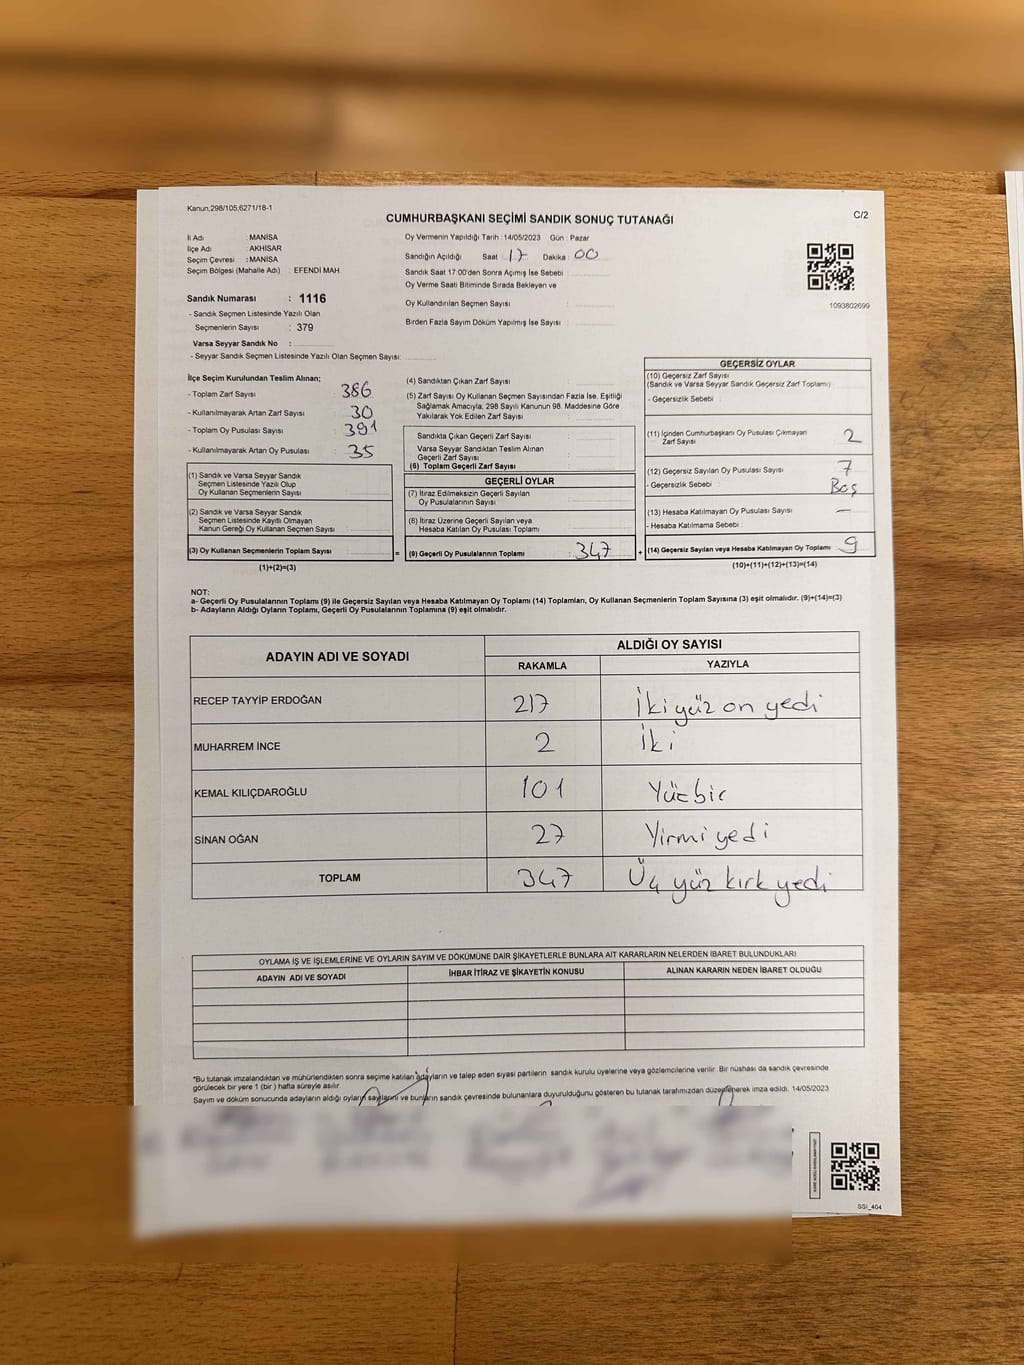 Kanun,298/105;6271/18-1
C/2
CUMHURBAŞKANI SEÇİMİ SANDIK SONUÇ TUTANAĞI
İl Adı : MANİSA
İlçe Adı : AKHİSAR
Seçim Çevresi : MANİSA
Seçim Bölgesi (Mahalle Adı) : EFENDİ MAH.
Oy Vermenin Yapıldığı Tarih : 14/05/2023 Gün : Pazar
Sandığın Açıldığı Saat : 17 Dakika : 00
Sandık Saat 17:00'den Sonra Açımış İse Sebebi :
Oy Verme Saati Bitiminde Sırada Bekleyen ve
Oy Kullandırılan Seçmen Sayısı :
Birden Fazla Sayım Döküm Yapılmış İse Sayısı :
1093802699
Sandık Numarası : 1116
- Sandık Seçmen Listesinde Yazılı Olan
Seçmenlerin Sayısı : 379
Varsa Seyyar Sandık No :
- Seyyar Sandık Seçmen Listesinde Yazılı Olan Seçmen Sayısı:
İlçe Seçim Kurulundan Teslim Alınan;
- Toplam Zarf Sayısı : 386
- Kullanılmayarak Artan Zarf Sayısı : 30
- Toplam Oy Pusulası Sayısı : 391
- Kullanılmayarak Artan Oy Pusulası : 35
(1) Sandık ve Varsa Seyyar Sandık
Seçmen Listesinde Yazılı Olup
Oy Kullanan Seçmenlerin Sayısı :
(2) Sandık ve Varsa Seyyar Sandık
Seçmen Listesinde Kayıtlı Olmayan
Kanun Gereği Oy Kullanan Seçmen Sayısı :
(3) Oy Kullanan Seçmenlerin Toplam Sayısı :
(1)+(2)=(3)
(4) Sandıktan Çıkan Zarf Sayısı :
(5) Zarf Sayısı Oy Kullanan Seçmen Sayısından Fazla İse, Eşitliği
Sağlamak Amacıyla, 298 Sayılı Kanunun 98. Maddesine Göre
Yakılarak Yok Edilen Zarf Sayısı :
Sandıkta Çıkan Geçerli Zarf Sayısı :
Varsa Seyyar Sandıktan Teslim Alınan
Geçerli Zarf Sayısı :
(6) Toplam Geçerli Zarf Sayısı :
GEÇERLİ OYLAR
(7) İtiraz Edilmeksizin Geçerli Sayılan
Oy Pusulalarının Sayısı :
(8) İtiraz Üzerine Geçerli Sayılan veya
Hesaba Katılan Oy Pusulası Toplamı :
= (9) Geçerli Oy Pusulalarının Toplamı : 347 +
GEÇERSİZ OYLAR
(10) Geçersiz Zarf Sayısı
(Sandık ve Varsa Seyyar Sandık Geçersiz Zarf Toplamı) :
- Geçersizlik Sebebi :
(11) İçinden Cumhurbaşkanı Oy Pusulası Çıkmayan
Zarf Sayısı : 2
(12) Geçersiz Sayılan Oy Pusulası Sayısı : 7
- Geçersizlik Sebebi : Boş
(13) Hesaba Katılmayan Oy Pusulası Sayısı : —
- Hesaba Katılmama Sebebi :
(14) Geçersiz Sayılan veya Hesaba Katılmayan Oy Toplamı : 9
(10)+(11)+(12)+(13)=(14)
NOT:
a- Geçerli Oy Pusulalarının Toplamı (9) ile Geçersiz Sayılan veya Hesaba Katılmayan Oy Toplamı (14) Toplamları, Oy Kullanan Seçmenlerin Toplam Sayısına (3) eşit olmalıdır. (9)+(14)=(3)
b- Adayların Aldığı Oyların Toplamı, Geçerli Oy Pusulalarının Toplamına (9) eşit olmalıdır.
ADAYIN ADI VE SOYADI ALDIĞI OY SAYISI
RAKAMLA YAZIYLA
RECEP TAYYİP ERDOĞAN 217 İki yüz on yedi
MUHARREM İNCE 2 İki
KEMAL KILIÇDAROĞLU 101 Yüzbir
SİNAN OĞAN 27 Yirmi yedi
TOPLAM 347 Üç yüz kırk yedi
OYLAMA İŞ VE İŞLEMLERİNE VE OYLARIN SAYIM VE DÖKÜMÜNE DAİR ŞİKAYETLERLE BUNLARA AİT KARARLARIN NELERDEN İBARET BULUNDUKLARI
ADAYIN ADI VE SOYADI İHBAR İTİRAZ VE ŞİKAYETİN KONUSU ALINAN KARARIN NEDEN İBARET OLDUĞU
*Bu tutanak imzalandıktan ve mühürlendikten sonra seçime katılan adayların ve talep eden siyasi partilerin sandık kurulu üyelerine veya gözlemcilerine verilir. Bir nüshası da sandık çevresinde
görülecek bir yere 1 (bir ) hafta süreyle asılır.
Sayım ve döküm sonucunda adayların aldığı oyların sayılarını ve bunların sandık çevresinde bulunanlara duyurulduğunu gösteren bu tutanak tarafımızdan düzenlenerek imza edildi. 14/05/2023
SSI_404